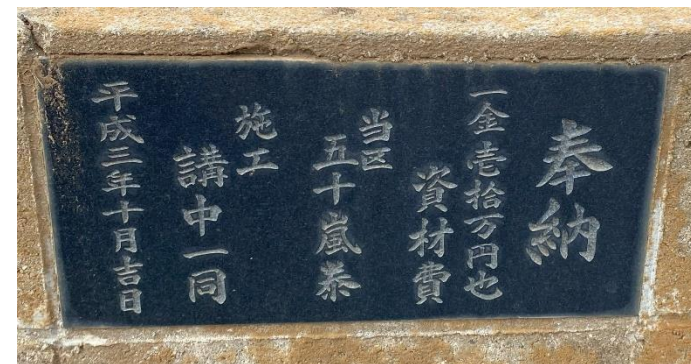 奉納
一金壱拾万円也
資材費
当区
五十嵐泰
施工
講中一同
平成三年十月吉日